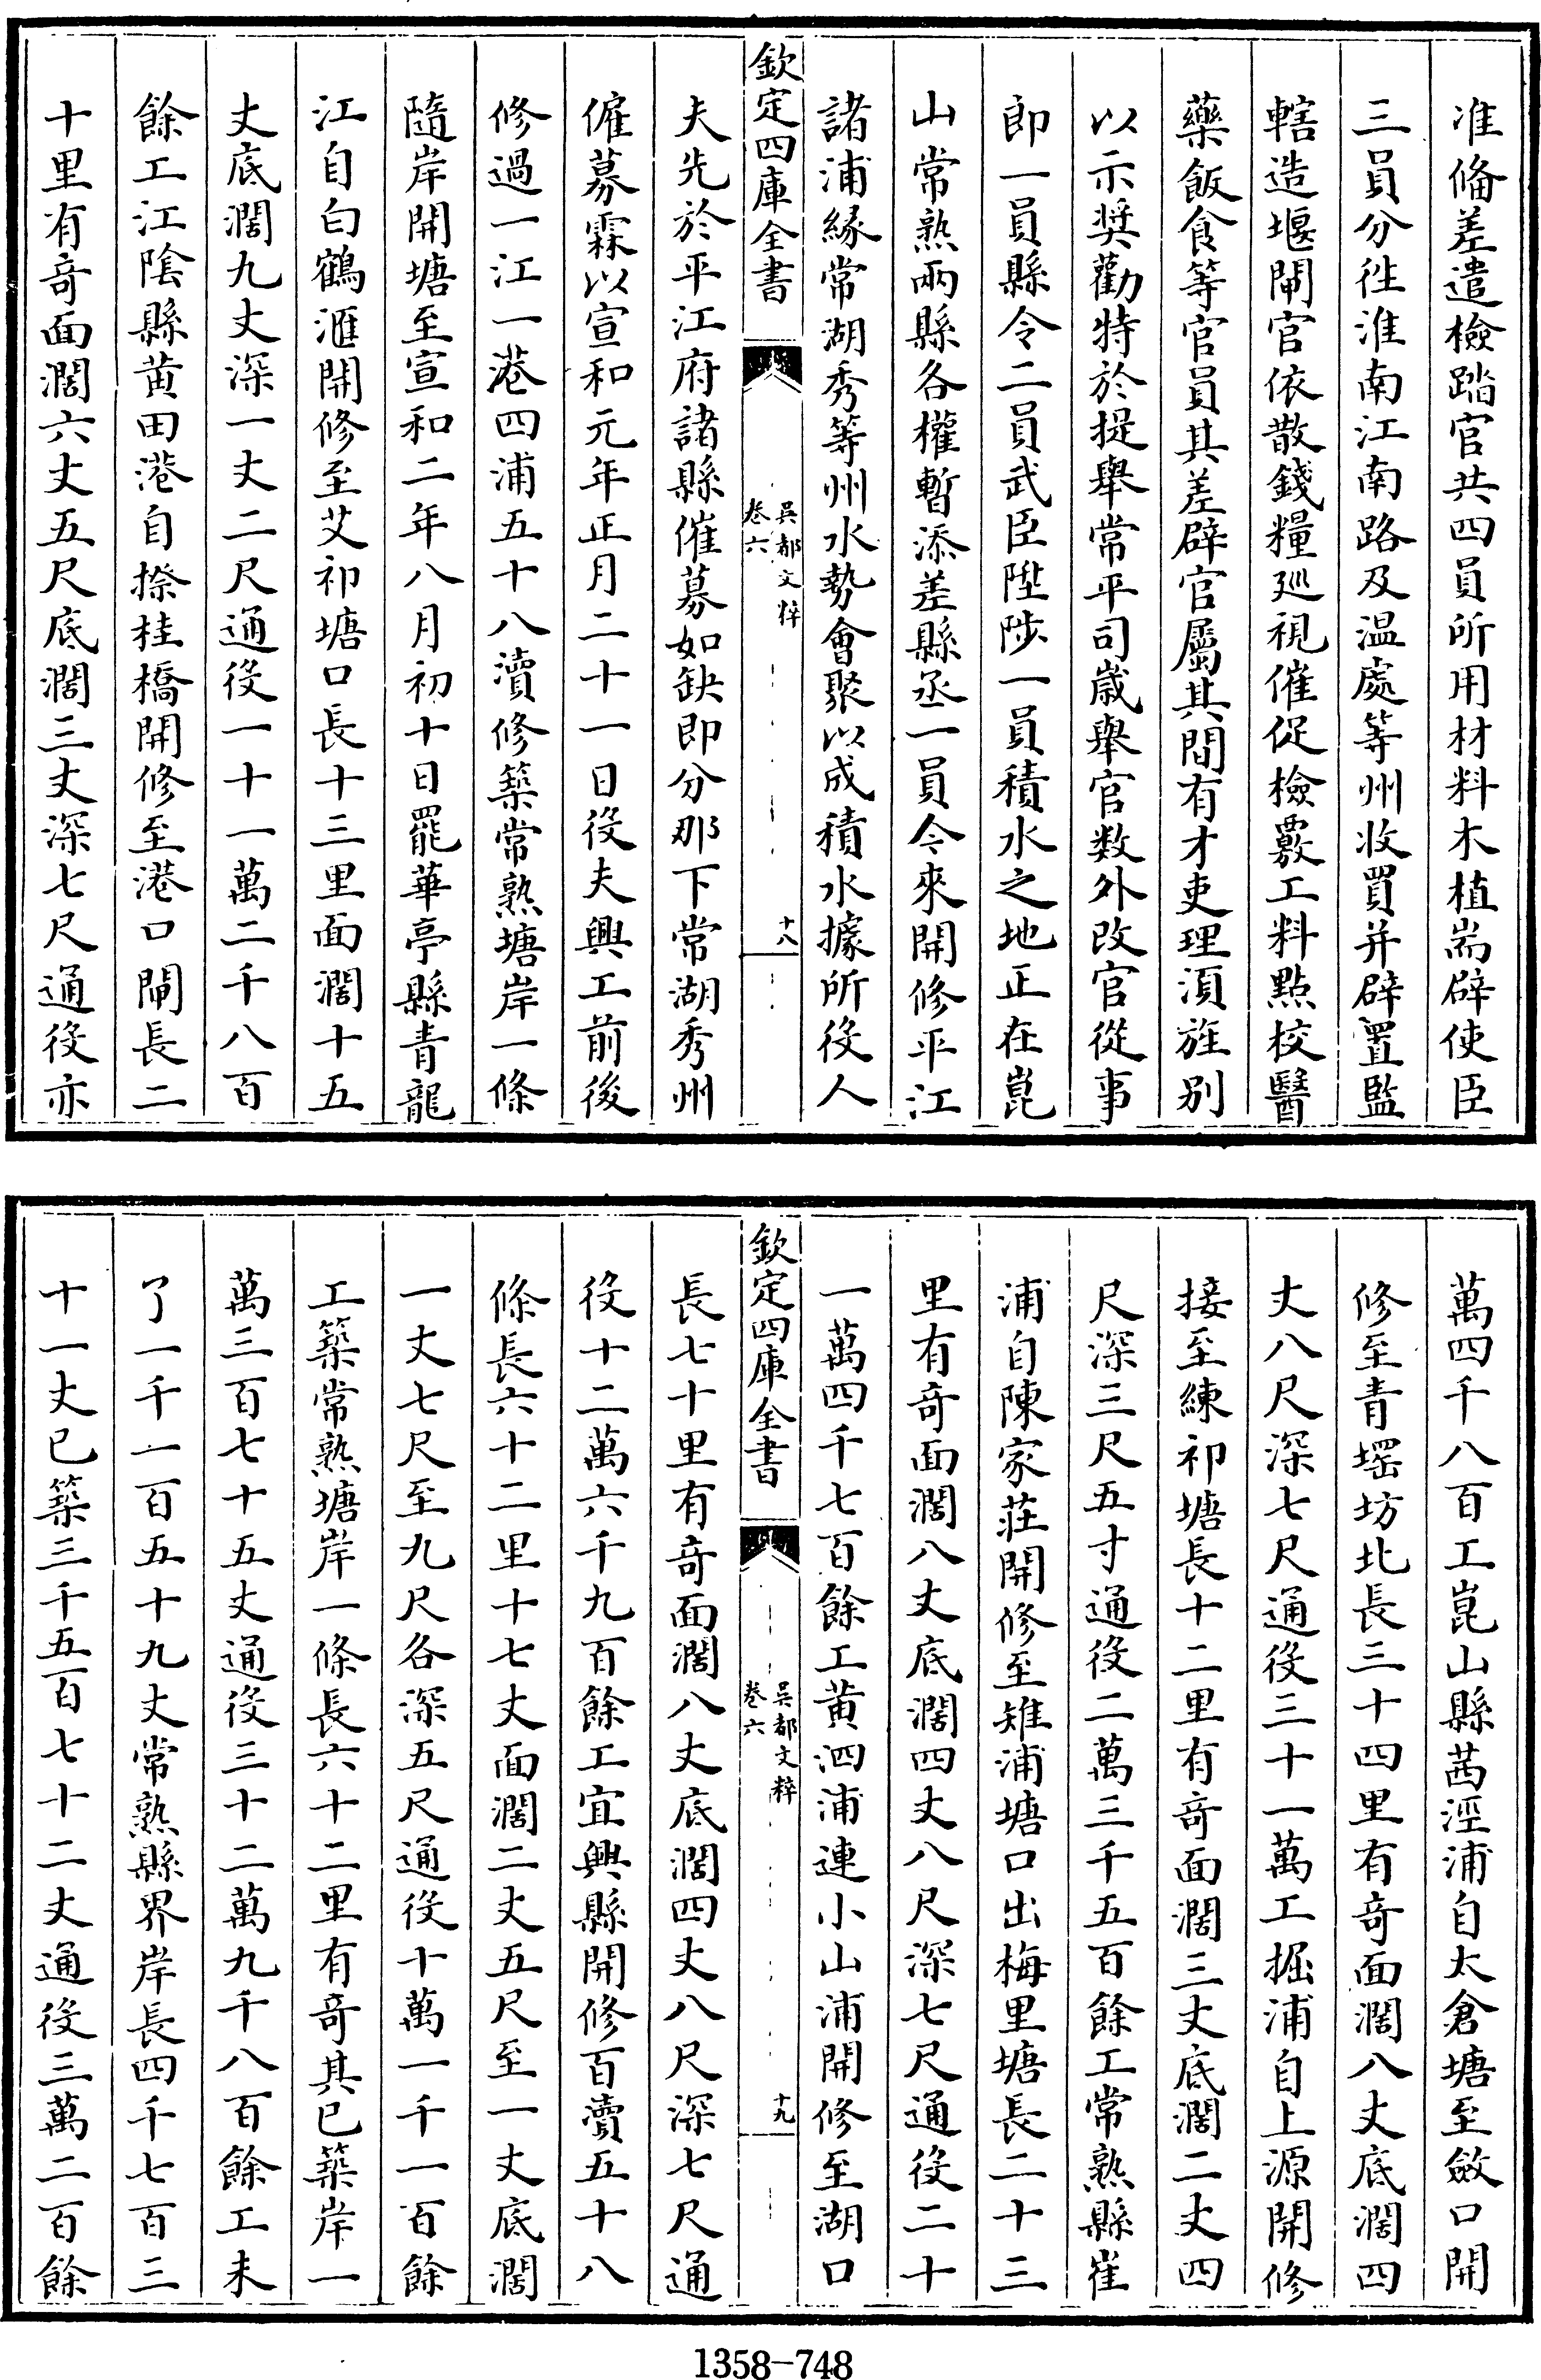 准備差遣檢踏官共四員所用材料木植耑辟使臣
三員分徃淮南江南路及温處等州收買并辟置監
轄造堰閘官依散錢糧廵視催促檢覈工料點校醫
藥飯食等官員其差辟官屬其間有才吏理湏旌别
以示奨勸特於提舉常平司嵗舉官数外改官從事
郎一員縣令二員武臣陞陟一員積水之地正在崑
山常熟兩縣各權暫添差縣丞一員令來開修平江
諸浦緣常湖秀等州水勢會聚以成積水據所役人
欽定四庫全書
吳都文粹
卷六
十八
夫先於平江府諸縣催募如缺即分那下常湖秀州
僱募霖以宣和元年正月二十一日役夫興工前後
修過一江一港四浦五十八瀆修築常熟塘岸一條
隨岸開塘至宣和二年八月初十日罷華亭縣青龍
江自白鶴滙開修至艾祁塘口長十三里面濶十五
丈底濶九丈深一丈二尺通役一十一萬二千八百
餘工江陰縣黄田港自捺桂橋開修至港口閘長二
十里有奇面濶六丈五尺底濶三丈深七尺通役亦
萬四千八百工崑山縣茜涇浦自太倉塘至斂口開
修至青堽坊北長三十四里有奇面濶八丈底濶四
丈八尺深七尺通役三十一萬工掘浦自上源開修
接至練祁塘長十二里有奇面濶三丈底濶二丈四
尺深三尺五寸通役二萬三千五百餘工常熟縣崔
浦自陳家莊開修至雉浦塘口出梅里塘長二十三
里有奇面濶八丈底濶四丈八尺深七尺通役二十
一萬四千七百餘工黄泗浦連小山浦開修至湖口
欽定四庫全書
吳都文粹
卷六
十九
長七十里有奇面濶八丈底濶四丈八尺深七尺通
役十二萬六千九百餘工宜興縣開修百瀆五十八
條長六十二里十七丈面濶二丈五尺至一丈底濶
一丈七尺至九尺各深五尺通役十萬一千一百餘
工築常熟塘岸一條長六十二里有奇其已築岸一
萬三百七十五丈通役三十二萬九千八百餘工未
了一千一百五十九丈常熟縣界岸長四千七百三
十一丈已築三千五百七十二丈通役三萬二百餘
1358-748